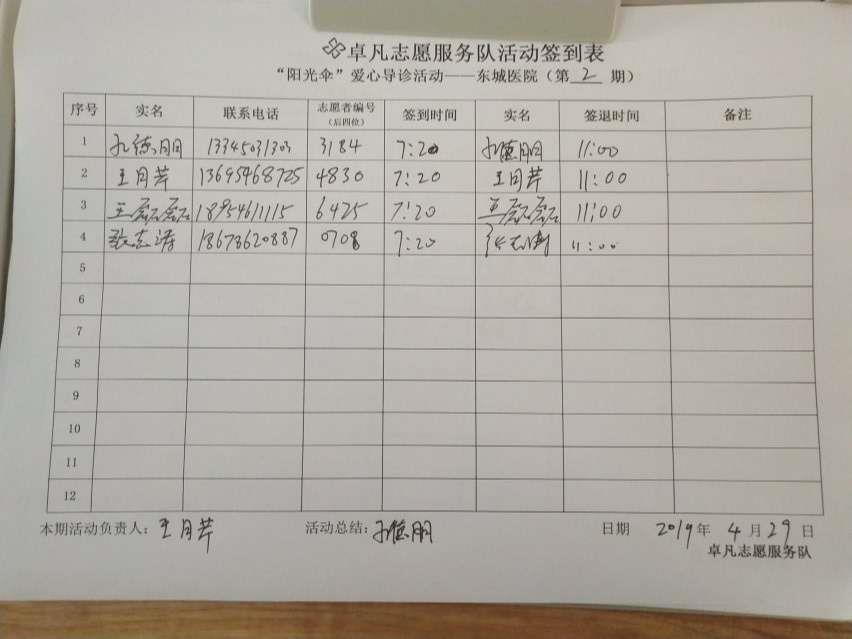 卓凡志愿服务队活动签到表
“阳光伞”爱心导诊活动——东城医院（第 2 期）
序号 实名 联系电话 志愿者编号（后四位） 签到时间 实名 签退时间 备注
1 孔德朋 13345031303 3184 7:20 孔德朋 11:00
2 王月芹 13695468725 4830 7:20 王月芹 11:00
3 王磊磊 18954611115 6425 7:20 王磊磊 11:00
4 张志涛 18678620887 0708 7:20 张志涛 11:00
5
6
7
8
9
10
11
12
本期活动负责人：王月芹 活动总结：孔德朋 日期 2019年 4月29日
卓凡志愿服务队